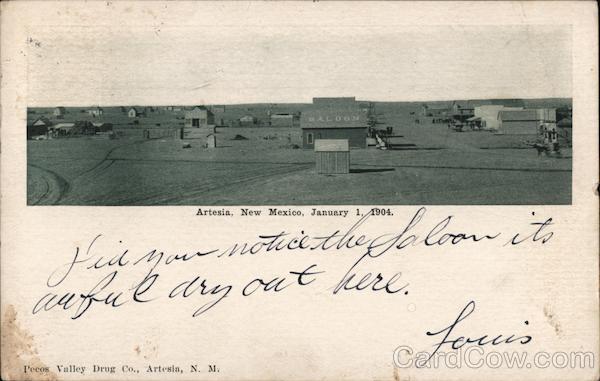 SALOON
Artesia, New Mexico, January 1, 1904.
Did you notice the Saloon its
awful dry out here.
Louis
Pecos Valley Drug Co., Artesia, N. M.
CardCow.com